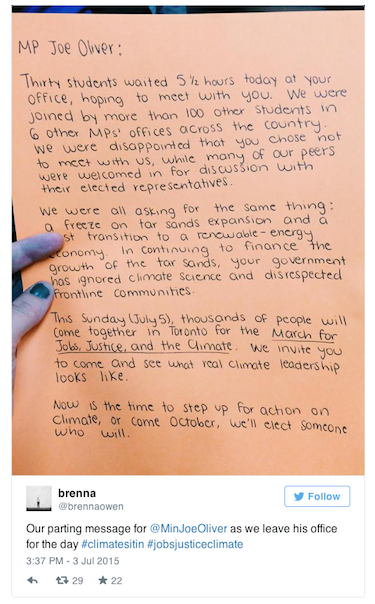 MP Joe Oliver:
Thirty students waited 5 1/2 hours today at your
office, hoping to meet with you. We were
joined by more than 100 other students in
6 other MPs' offices across the country.
We were disappointed that you chose not
to meet with us, while many of our peers
were welcomed in for discussion with
their elected representatives.
We were all asking for the same thing:
a freeze on tar sands expansion and a
st transition to a renewable-energy
economy. In continuing to finance the
growth of the tar sands, your government
has ignored climate science and disrespected
frontline communities.
This Sunday (July 5), thousands of people will
come together in Toronto for the March for
Jobs, Justice, and the Climate. We invite you
to come and see what real climate leadership
looks like.
Now is the time to step up for action on
climate, or come October, we'll elect someone
who will.
brenna
@brennaowen
Follow
Our parting message for @MinJoeOliver as we leave his office
for the day #climatesitin #jobsjusticeclimate
3:37 PM - 3 Jul 2015
29 22